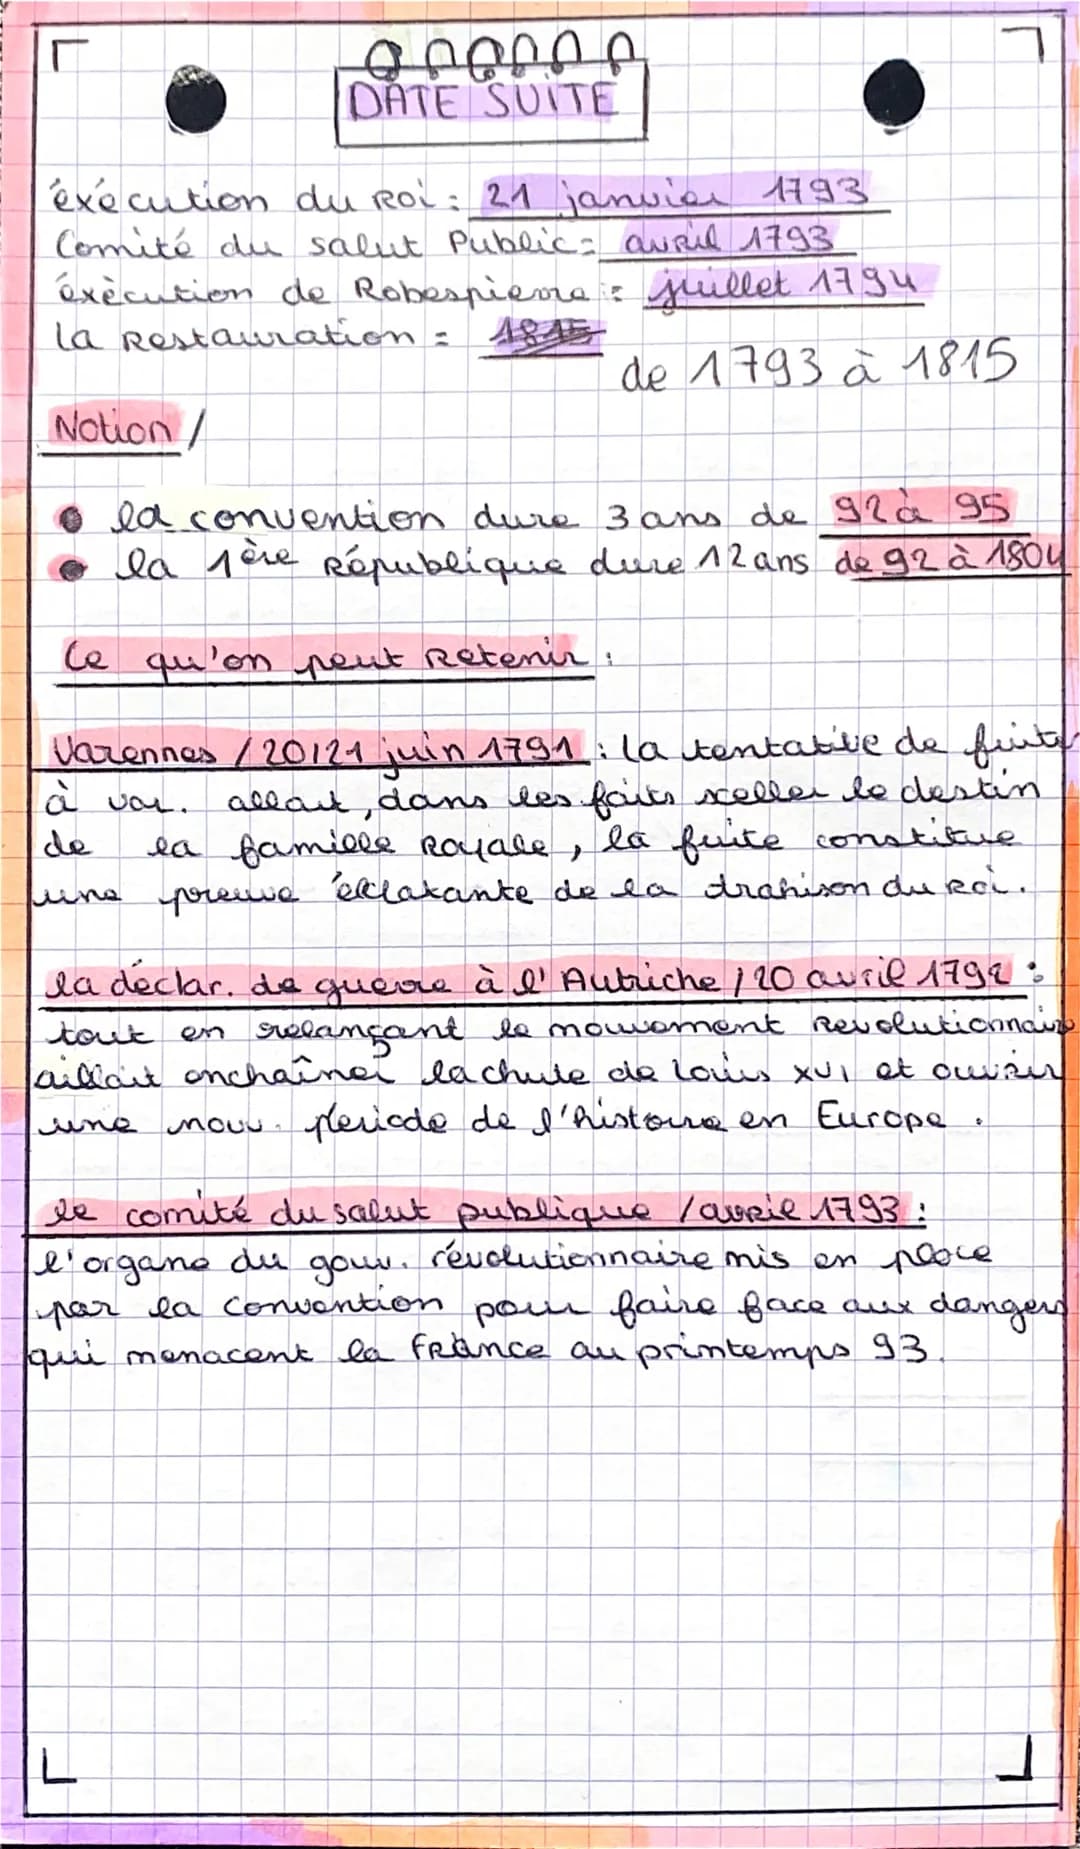 DATE SUITE
éxécution du Roi : 21 janvier 1793
Comité du salut Public = avril 1793
éxècution de Robespierre : juillet 1794
la Restauration = 1815
de 1793 à 1815
Notion /
la convention dure 3 ans de 92 à 95
la 1ère République dure 12 ans de 92 à 1804
Ce qu'on peut Retenir :
Varennes / 20/21 juin 1791 : la tentative de fuite
à var. allait, dans les faits sceller le destin
de la famille Royale, la fuite constitue
une preuve éclatante de la drahison du Roi.
la déclar. de guerre à l'Autriche / 20 avril 1792 :
tout en relançant le mouvement Revolutionnaire
aillait enchaîner la chute de Louis XVI et ouvrir
une nouv. periode de l'histoire en Europe.
le comité du salut publique / avril 1793 :
l'organe du gouv. révolutionnaire mis en place
par la Convention pour faire face aux dangers
qui menacent la France au printemps 93.